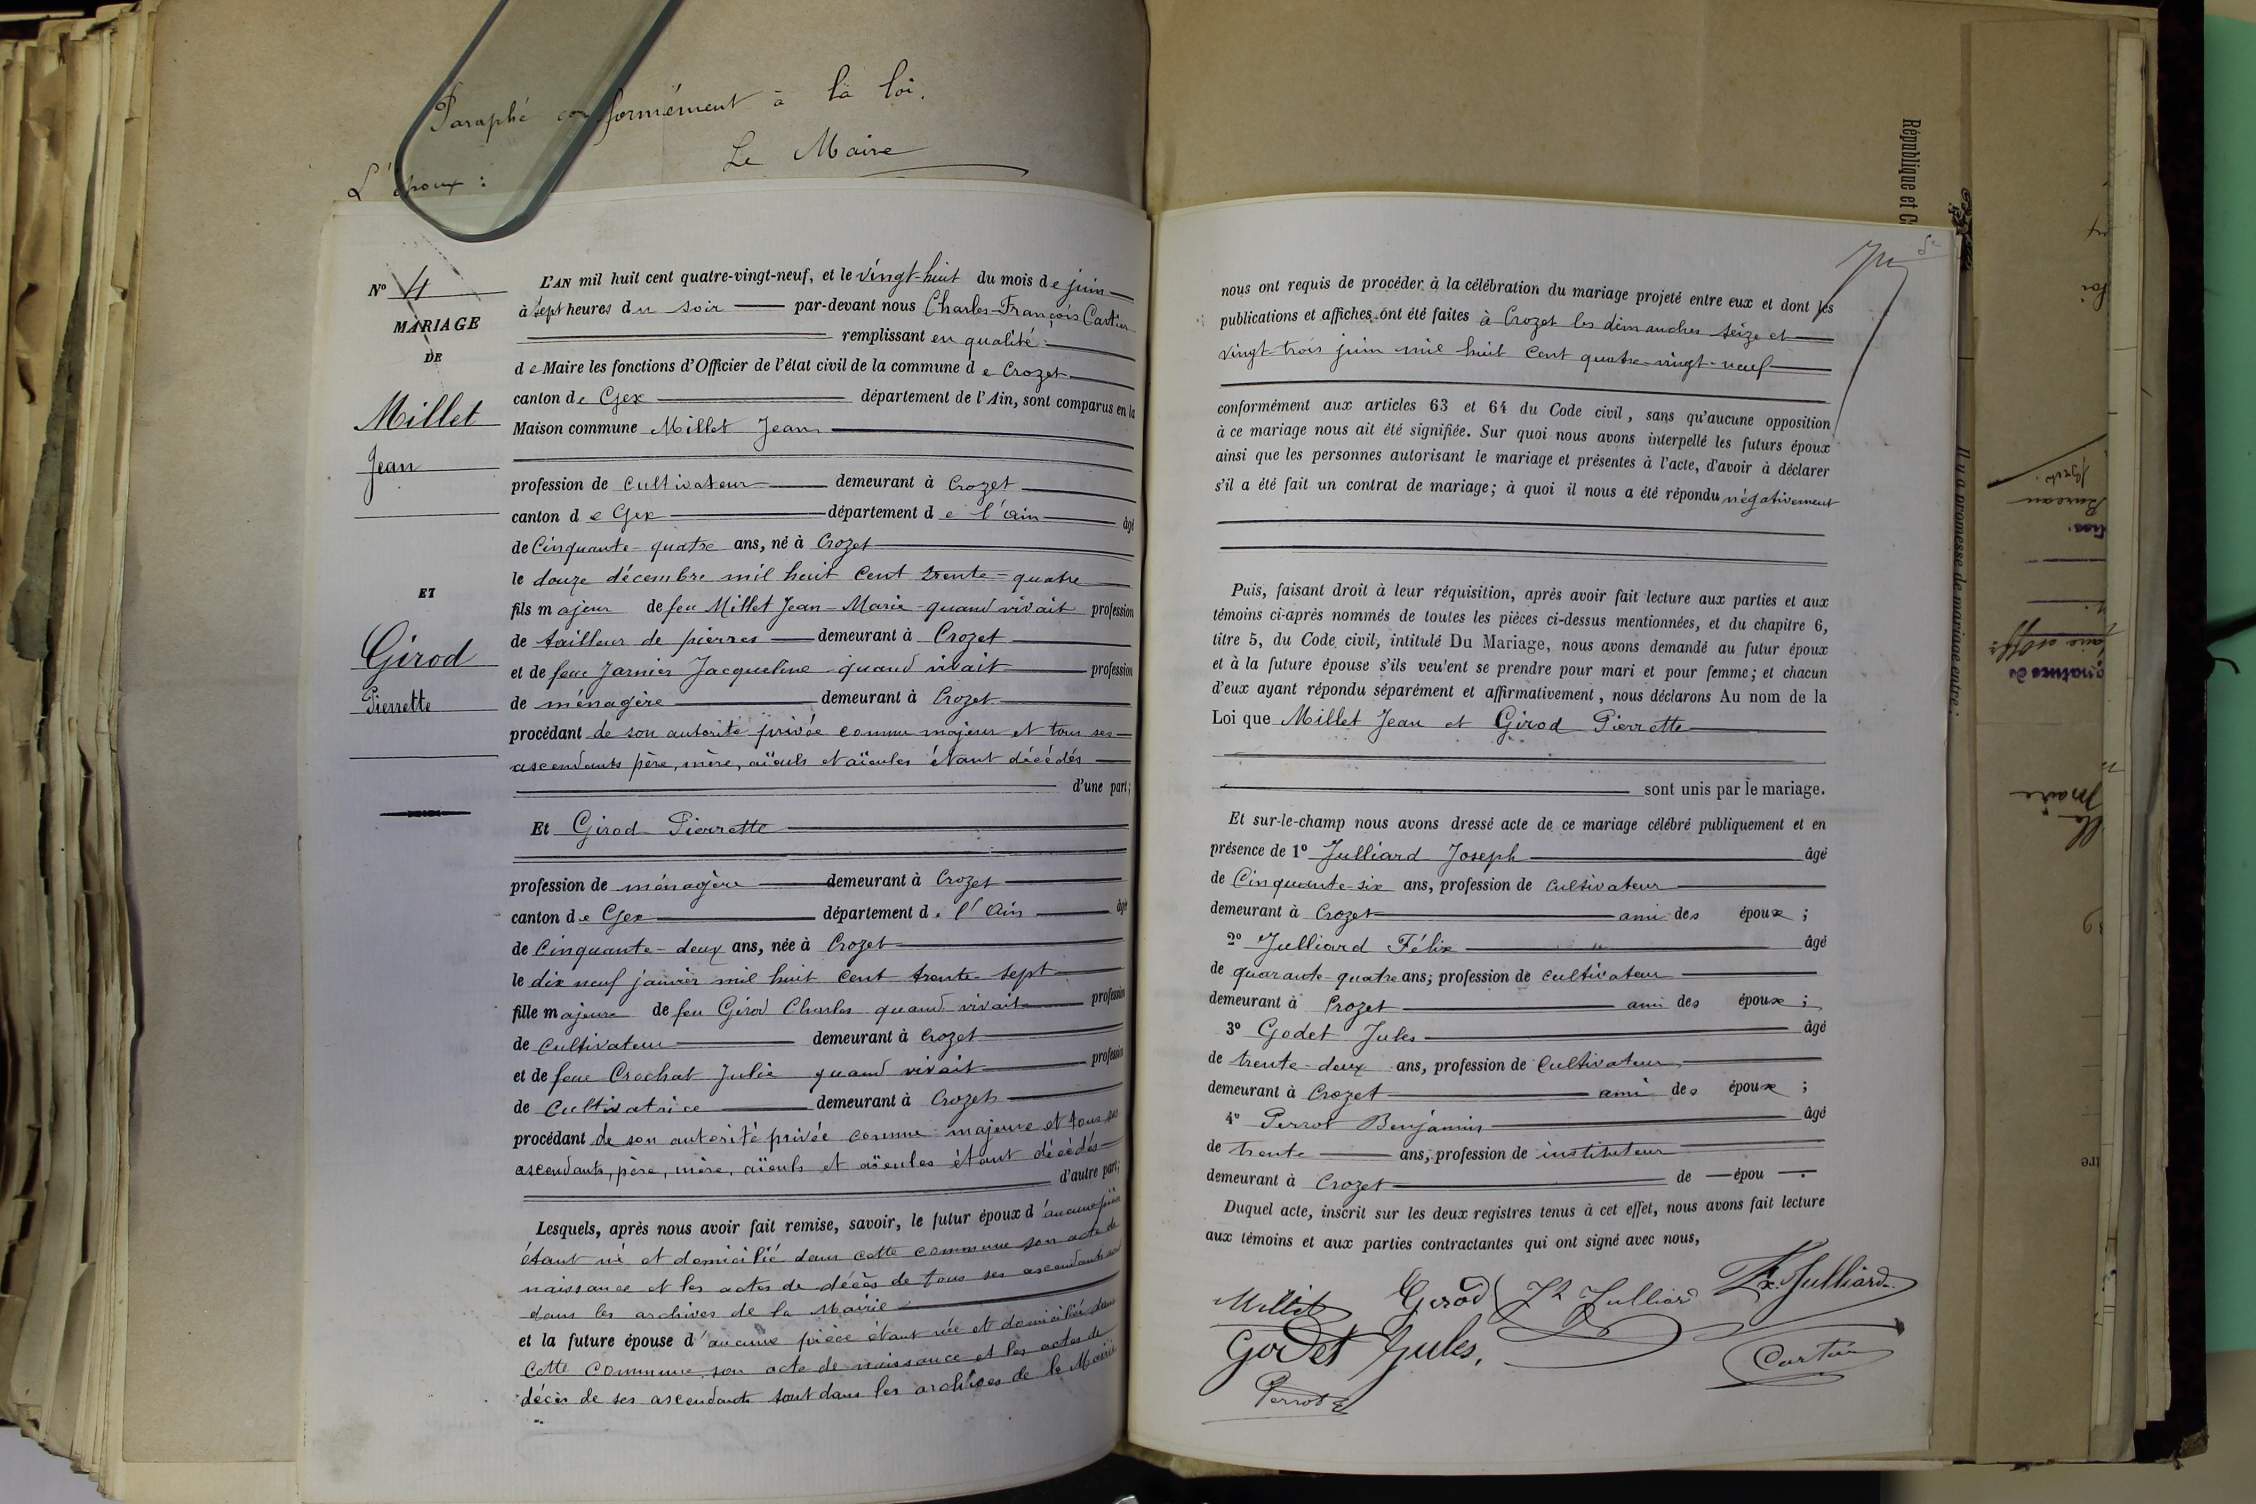 Paraphé conformément à la loi.
Le Maire
L'époux :
N° 4
MARIAGE
DE
Millet
Jean
ET
Girod
Pierrette
L'AN mil huit cent quatre-vingt-neuf, et le vingt-huit du mois de juin
à sept heures du soir par-devant nous Charles-François Cartier
remplissant en qualité
de Maire les fonctions d'Officier de l'état civil de la commune de Crozet
canton de Gex département de l'Ain, sont comparus en la
Maison commune Millet Jean
profession de cultivateur demeurant à Crozet
canton de Gex département de l'Ain âgé
de Cinquante-quatre ans, né à Crozet
le douze décembre mil huit cent trente-quatre
fils majeur de feu Millet Jean-Marie quand vivait profession
de tailleur de pierres demeurant à Crozet
et de feue Jarnier Jacqueline quand vivait profession
de ménagère demeurant à Crozet
procédant de son autorité privée comme majeur et tous ses
ascendants père, mère, aïeuls et aïeules étant décédés
d'une part;
Et Girod Pierrette
profession de ménagère demeurant à Crozet
canton de Gex département de l'Ain âgé
de Cinquante-deux ans, née à Crozet
le dix neuf janvier mil huit cent trente-sept
fille majeure de feu Girod Charles quand vivait profession
de cultivateur demeurant à Crozet
et de feue Crochat Julie quand vivait profession
de cultivatrice demeurant à Crozet
procédant de son autorité privée comme majeure et tous ses
ascendants, père, mère, aïeuls et aïeules étant décédés
d'autre part;
Lesquels, après nous avoir fait remise, savoir, le futur époux d'aucune pièce
étant né et domicilié dans cette commune son acte de
naissance et les actes de décès de tous ses ascendants sont
dans les archives de la Mairie
et la future épouse d'aucune pièce étant née et domiciliée dans
cette commune son acte de naissance et les actes de
décès de ses ascendants sont dans les archives de la Mairie
nous ont requis de procéder à la célébration du mariage projeté entre eux et dont les
publications et affiches ont été faites à Crozet les dimanches seize et
vingt-trois juin mil huit cent quatre-vingt-neuf
conformément aux articles 63 et 64 du Code civil, sans qu'aucune opposition
à ce mariage nous ait été signifiée. Sur quoi nous avons interpellé les futurs époux
ainsi que les personnes autorisant le mariage et présentes à l'acte, d'avoir à déclarer
s'il a été fait un contrat de mariage; à quoi il nous a été répondu négativement
Puis, faisant droit à leur réquisition, après avoir fait lecture aux parties et aux
témoins ci-après nommés de toutes les pièces ci-dessus mentionnées, et du chapitre 6,
titre 5, du Code civil, intitulé Du Mariage, nous avons demandé au futur époux
et à la future épouse s'ils veu'ent se prendre pour mari et pour femme; et chacun
d'eux ayant répondu séparément et affirmativement, nous déclarons Au nom de la
Loi que Millet Jean et Girod Pierrette
sont unis par le mariage.
Et sur-le-champ nous avons dressé acte de ce mariage célébré publiquement et en
présence de 1° Julliard Joseph âgé
de Cinquante-six ans, profession de cultivateur
demeurant à Crozet ami des époux ;
2° Julliard Félix âgé
de quarante-quatre ans; profession de cultivateur
demeurant à Crozet ami des époux ;
3° Godet Jules âgé
de trente-deux ans, profession de Cultivateur
demeurant à Crozet ami des époux ;
4° Perrot Benjamin âgé
de trente ans, profession de instituteur
demeurant à Crozet de épou .
Duquel acte, inscrit sur les deux registres tenus à cet effet, nous avons fait lecture
aux témoins et aux parties contractantes qui ont signé avec nous,
Millet Girod Jh Julliard Fx. Julliard
Godet Jules. Cartier
Perrot B
République et C
Il y a promesse de mariage entre :
Bureau
Le Maire